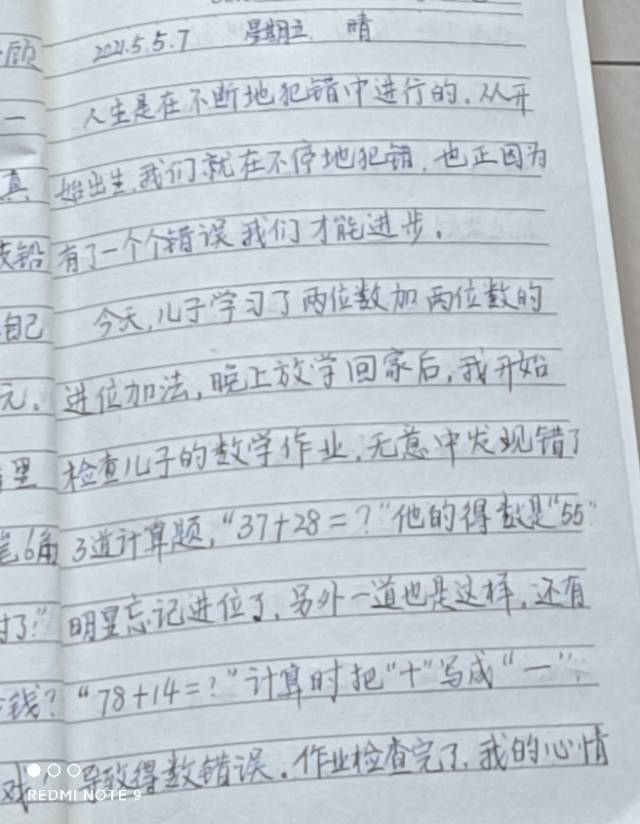 2021.5.5.7 星期五 晴
人生是在不断地犯错中进行的,从开
始出生,我们就在不停地犯错,也正因为
有了一个个错误我们才能进步。
今天,儿子学习了两位数加两位数的
进位加法,晚上放学回家后,我开始
检查儿子的数学作业,无意中发现错了
3道计算题,“37+28=?”他的得数是“55”
明显忘记进位了,另外一道也是这样,还有
“78+14=?”计算时把“十”写成“一”,
导致得数错误。作业检查完了,我的心情
顾
一
真
铅
自己
元。
里
笔6角
过了!”
钱?
对
REDMI NOTE 9